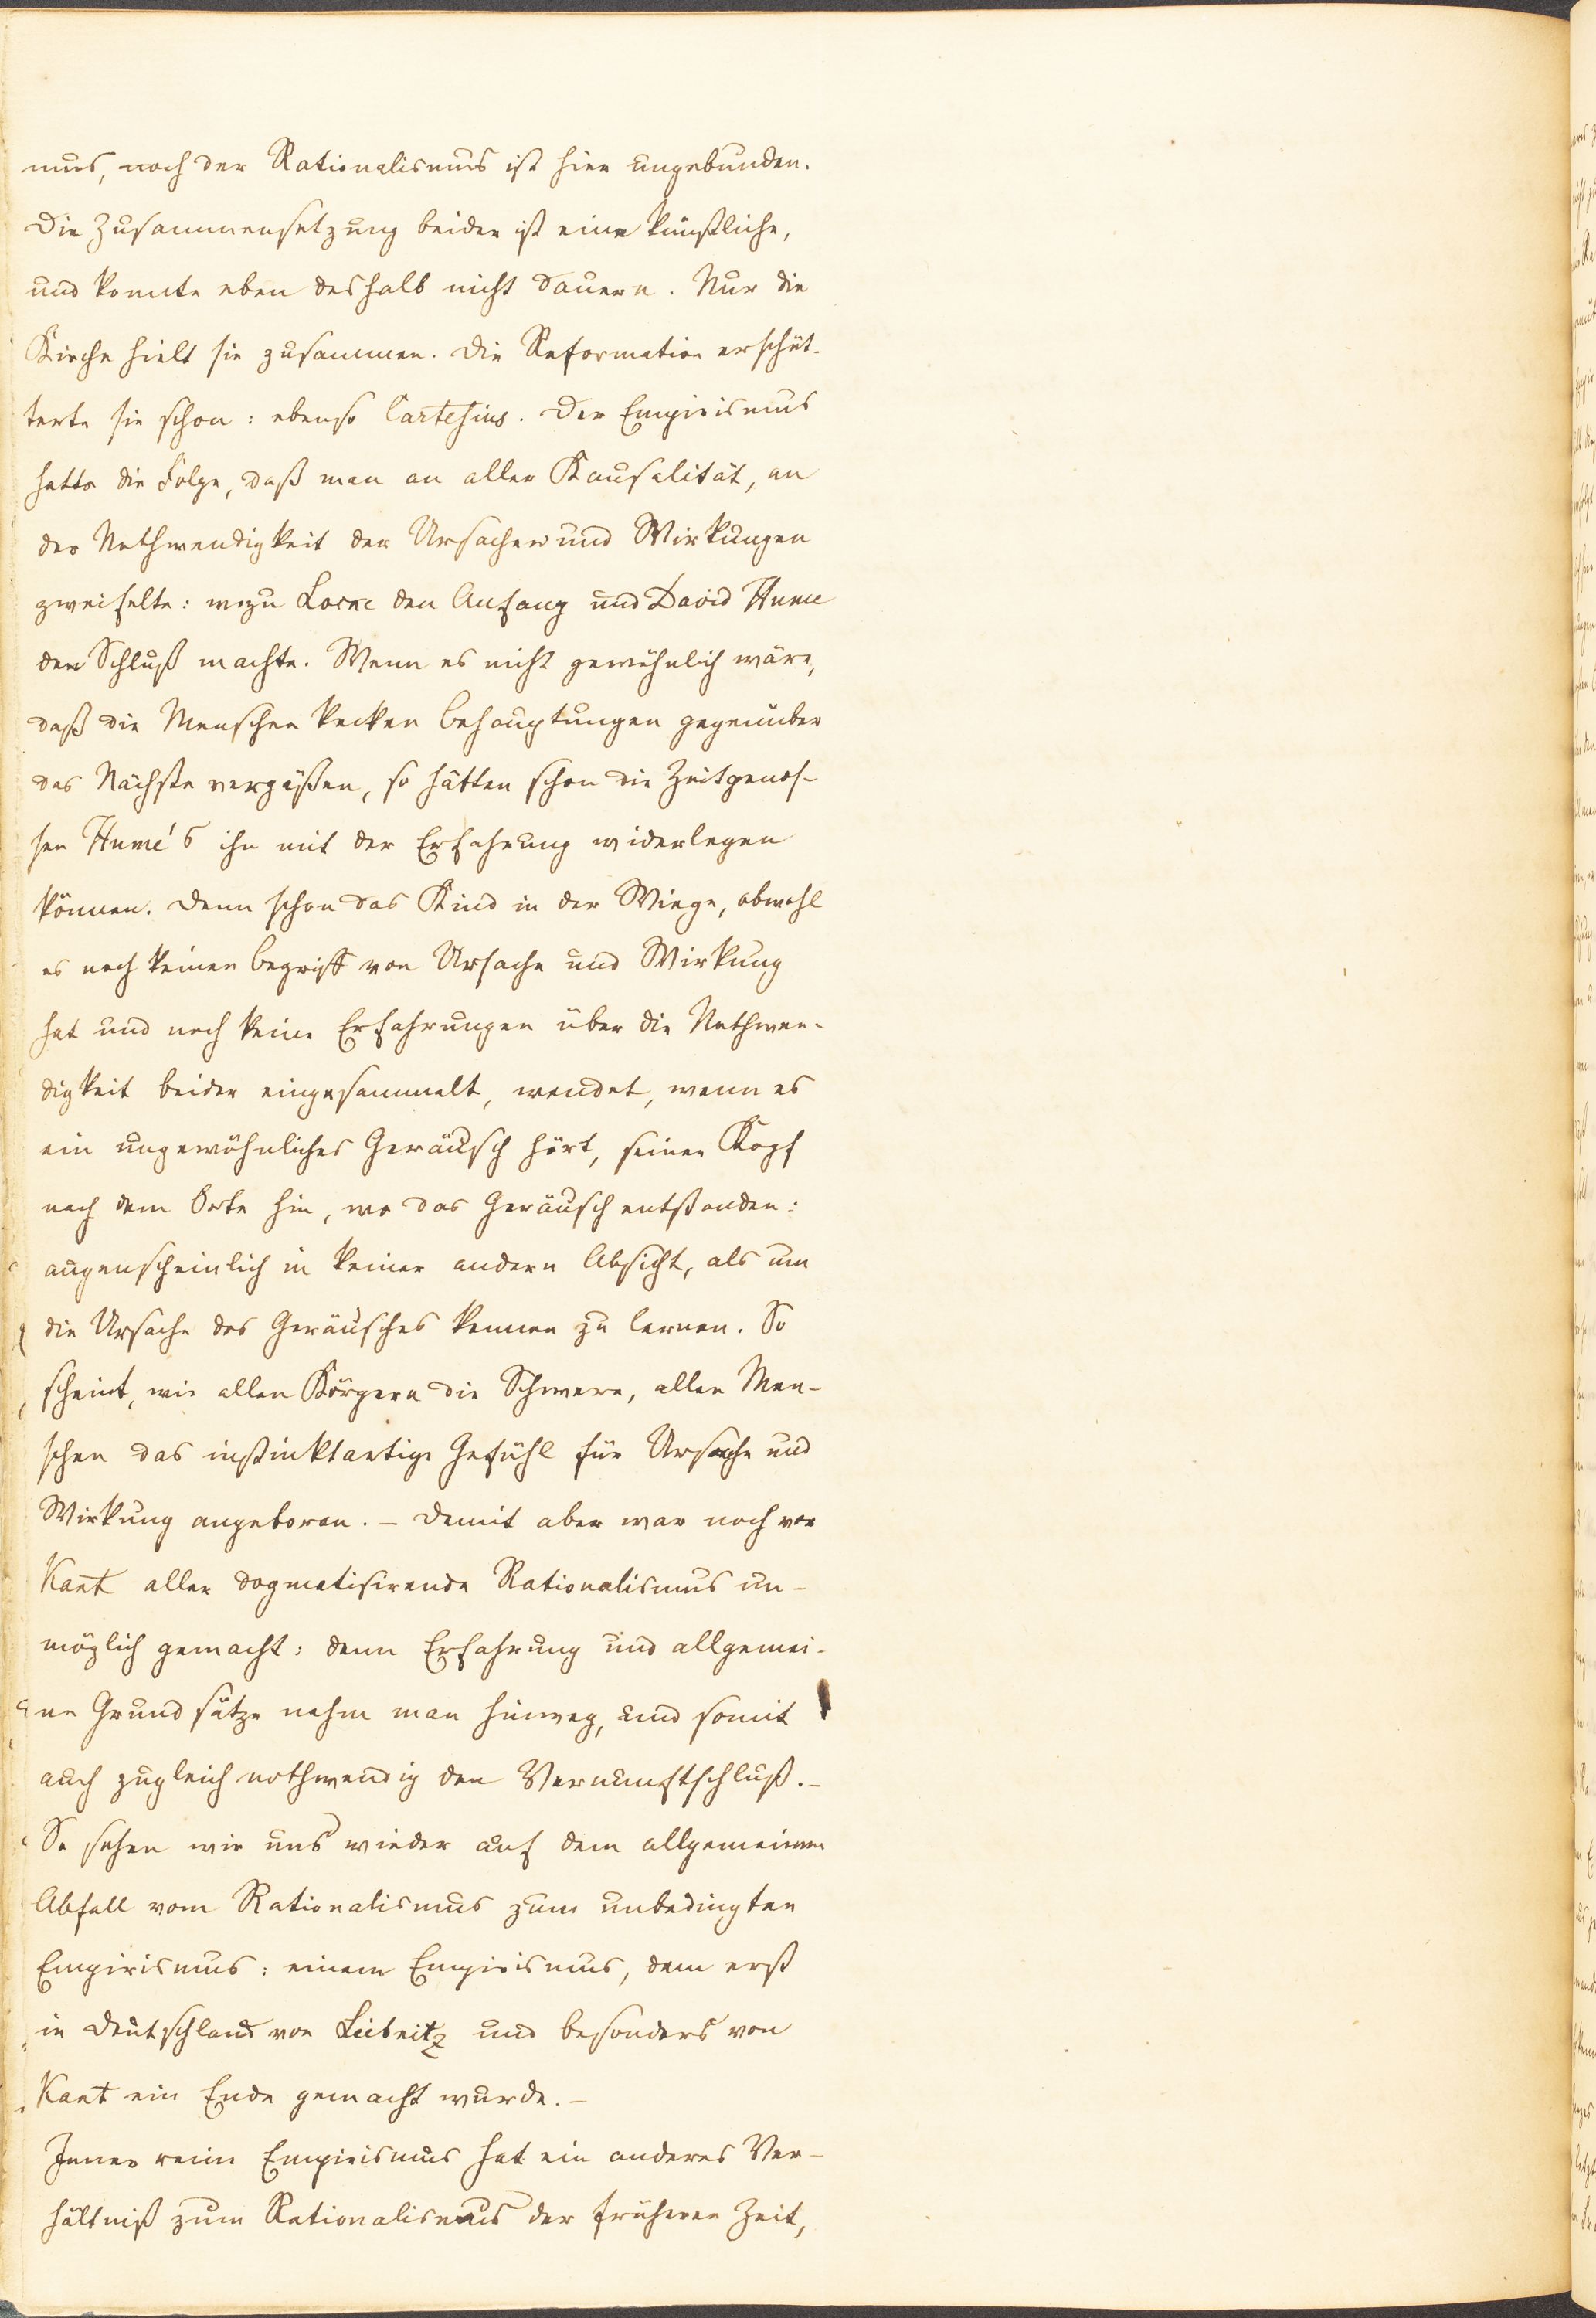 mus, noch der Rationalismus ist hier ungebunden.
Die Zusammensetzung beider ist eine künstliche,
und konnte eben deshalb nicht dauern. Nur die
Kirche hielt sie zusammen. Die Reformation erschüt-
terte sie schon: ebenso Cartesius. Der Empirismus
hatte die Folge, daß man an aller Kausalität, an
der Nothwendigkeit der Ursachen und Wirkungen
zweifelte: wozu Locke den Anfang und David Hume
den Schluß machte. Wenn es nicht gewöhnlich wäre,
daß die Menschen kecken Behauptungen gegenüber
das Nächste vergäßen, so hätten schon die Zeitgenos-
sen Hume's ihn mit der Erfahrung widerlegen
können. Denn schon das Kind in der Wiege, obwohl
es noch keinen Begriff von Ursache und Wirkung
hat und noch keine Erfahrungen über die Nothwen-
digkeit beider eingesammelt, wendet, wenn es
ein ungewöhnliches Geräusch hört, seinen Kopf
nach dem Orte hin, wo das Geräusch entstanden:
augenscheinlich in keiner andern Absicht, als um
die Ursache des Geräusches kennen zu lernen. So
scheint, wie allen Körpern die Schwere, allen Men-
schen das instinktartige Gefühl für Ursache und
Wirkung angeboren. – Damit aber war noch vor
Kant aller dogmatisirende Rationalismus un-
möglich gemacht: denn Erfahrung und allgemei-
ne Grundsätze nahm man hinweg, und somit
auch zugleich nothwendig den Vernunftschluß. –
So sehen wir uns wieder auf dem allgemeinen
Abfall vom Rationalismus zum unbedingten
Empirismus: einem Empirismus, dem erst
in Deutschland von Leibnitz und besonders von
Kant ein Ende gemacht wurde. –
Jener reine Empirismus hat ein anderes Ver-
hältniß zum Rationalismus der früheren Zeit,